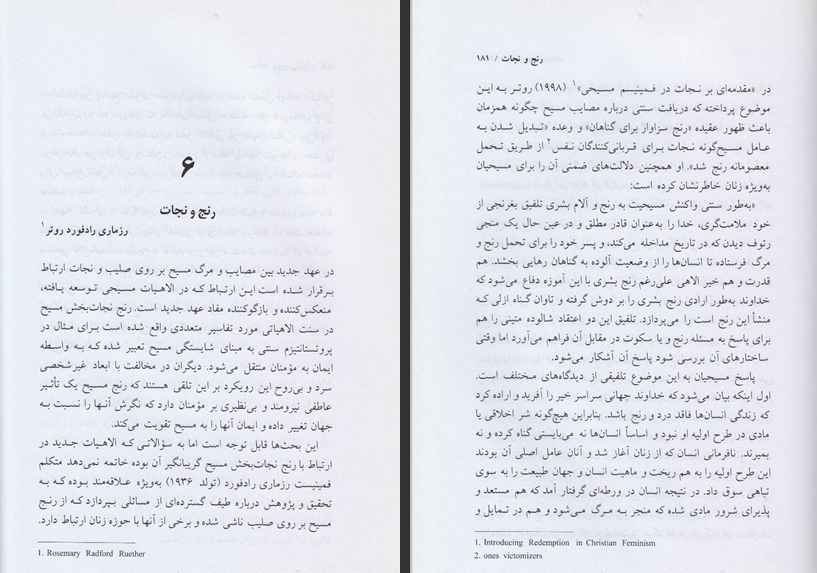 ۶
رنج و نجات
رزماری رادفورد روتر۱
در عهد جدید بین مصایب و مرگ مسیح بر روی صلیب و نجات ارتباط
برقرار شده است این ارتباط که در الاهیات مسیحی توسعه یافته،
منعکس‌کننده و بازگوکننده مفاد عهد جدید است. رنج نجات‌بخش مسیح
در سنت الاهیاتی مورد تفاسیر متعددی واقع شده است برای مثال در
پروتستانتیزم سنتی به مبنای شایستگی مسیح تعبیر شده که به واسطه
ایمان به مؤمنان منتقل می‌شود. دیگران در مخالفت با ابعاد غیرشخصی
سرد و بی‌روح این رویکرد بر این تلقی هستند که رنج مسیح یک تأثیر
عاطفی نیرومند و بی‌نظیری بر مؤمنان دارد که نگرش آنها را نسبت به
جهان تغییر داده و ایمان آنها را به مسیح تقویت می‌کند.
این بحث‌ها قابل توجه است اما به سؤالاتی که الاهیات جدید در
ارتباط با رنج نجات‌بخش مسیح گریبانگیر آن بوده خاتمه نمی‌دهد متکلم
فمینیست رزماری رادفورد (تولد ۱۹۳۶) به‌ویژه علاقه‌مند بوده که به
تحقیق و پژوهش درباره طیف گسترده‌ای از مسائلی بپردازد که از رنج
مسیح بر روی صلیب ناشی شده و برخی از آنها با حوزه زنان ارتباط دارد.
1. Rosemary Radford Ruether
رنج و نجات / ۱۸۱
در «مقدمه‌ای بر نجات در فمینیسم مسیحی»۱ (۱۹۹۸) روتر به این
موضوع پرداخته که دریافت سنتی درباره مصایب مسیح چگونه همزمان
باعث ظهور عقیده «رنج سزاوار برای گناهان» و وعده «تبدیل شدن به
عامل مسیح‌گونه نجات برای قربانی‌کنندگان نفس۲ از طریق تحمل
معصومانه رنج شد». او همچنین دلالت‌های ضمنی آن را برای مسیحیان
به‌ویژه زنان خاطرنشان کرده است:
«به‌طور سنتی واکنش مسیحیت به رنج و آلام بشری تلفیق بغرنجی از
خود ملامت‌گری، خدا را به‌عنوان قادر مطلق و در عین حال یک منجی
رئوف دیدن که در تاریخ مداخله می‌کند، و پسر خود را برای تحمل رنج و
مرگ فرستاده تا انسان‌ها را از وضعیت آلوده به گناهان رهایی بخشد. هم
قدرت و هم خیر الاهی علی‌رغم رنج بشری با این آموزه دفاع می‌شود که
خداوند به‌طور ارادی رنج بشری را بر دوش گرفته و تاوان گناه ازلی که
منشأ این رنج است را می‌پردازد. تلفیق این دو اعتقاد شالوده متینی را هم
برای پاسخ به مسئله رنج و یا سکوت در مقابل آن فراهم می‌آورد اما وقتی
ساختارهای آن بررسی شود پاسخ آن آشکار می‌شود.
پاسخ مسیحیان به این موضوع تلفیقی از دیدگاه‌های مختلف است.
اول اینکه بیان می‌شود که خداوند جهانی سراسر خیر را آفرید و اراده کرد
که زندگی انسان‌ها فاقد درد و رنج باشد. بنابراین هیچ‌گونه شر اخلاقی یا
مادی در طرح اولیه او نبود و اساساً انسان‌ها نه می‌بایستی گناه کرده و نه
بمیرند. نافرمانی انسان که از زنان آغاز شد و آنان عامل اصلی آن بودند
این طرح اولیه را به هم ریخت و ماهیت انسان و جهان طبیعت را به سوی
تباهی سوق داد. در نتیجه انسان در ورطه‌ای گرفتار آمد که هم مستعد و
پذیرای شرور مادی شده که منجر به مرگ می‌شود و هم در تمایل و
1. Introducing Redemption in Christian Feminism
2. ones victomizers